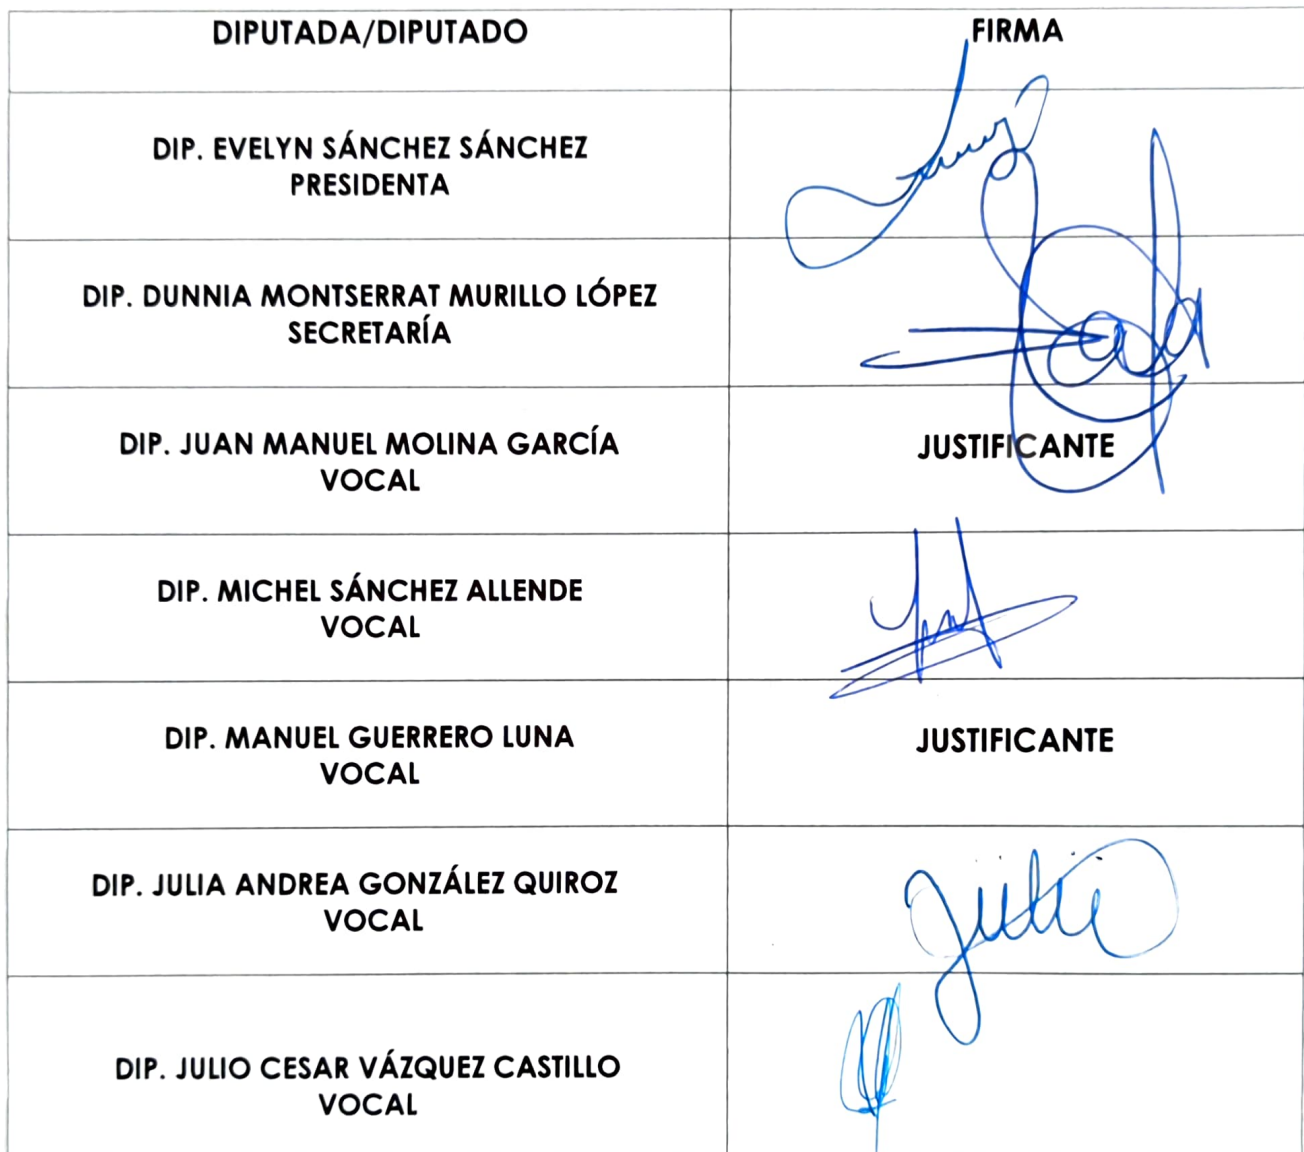 DIPUTADA/DIPUTADO
FIRMA
DIP. EVELYN SÁNCHEZ SÁNCHEZ
PRESIDENTA
DIP. DUNNIA MONTSERRAT MURILLO LÓPEZ
SECRETARÍA
DIP. JUAN MANUEL MOLINA GARCÍA
VOCAL
JUSTIFICANTE
DIP. MICHEL SÁNCHEZ ALLENDE
VOCAL
DIP. MANUEL GUERRERO LUNA
VOCAL
JUSTIFICANTE
DIP. JULIA ANDREA GONZÁLEZ QUIROZ
VOCAL
DIP. JULIO CESAR VÁZQUEZ CASTILLO
VOCAL